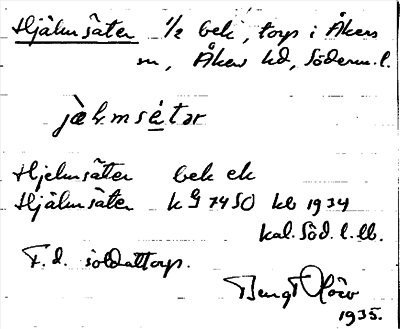 Hjälmsäter 1/2 bek, torp i Åkers
sn, Åkers hd, Söderm. l.
jäl.msétar
Hjelmsäter bek ek
Hjälmsäter kG 7450 kb 1934
kal. Söd. l. lb.
F.d. soldattorp.
Bengt
1935.